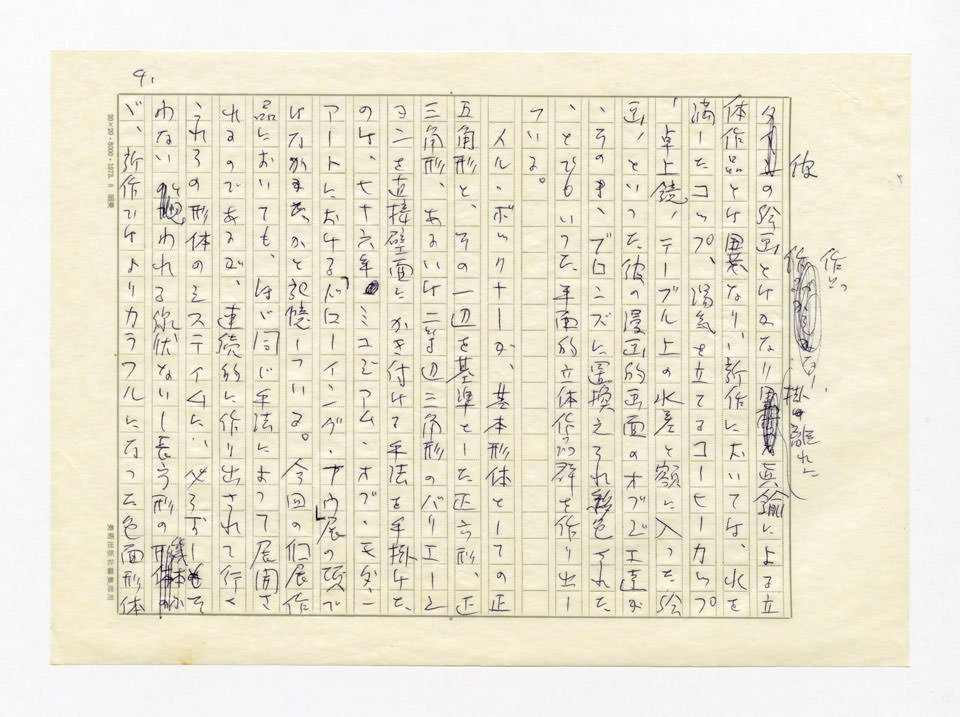 9.
彼
作っ
掛け離れた
の絵画とはかなり 真鍮による立
体作品とは異なり、新作においては、水を
満したコップ、湯気を立てるコーヒーカップ
、卓上鏡、テーブル上の水差と額に入った絵
画、といった彼の漫画的画面のオブジェ達が
、そのまゝ、ブロンズに置換えられ彩色された
、とでもいった平面的立体作品群を作り出し
ている。
メル・ボックナーが、基本形体としての正
五角形と、その一辺を基準とした正方形、正
三角形、あるいは二等辺三角形のバリエーシ
ョンを直接壁面にかき付けて手法を手掛けた
のは、七十六年 ミュジアム・オブ・モダン
アートにおける「ドローイング・ナウ」展の頃で
はなかったかと記憶している。今回の個展作
品においても、ほゞ同じ手法によって展開さ
れるのであるが、連続的に作り出されて行く
これらの形体のシステイムに、必ろずしもそ
わない と思われる 形の 線体か
が、新作ではよりカラフルになった色面形体
20×20・8000・1973.8 国東